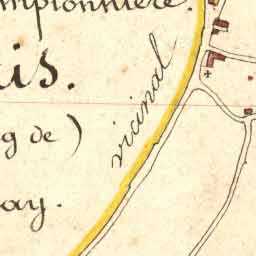 mpionnière.
is.
g de)
ay.
vicinal